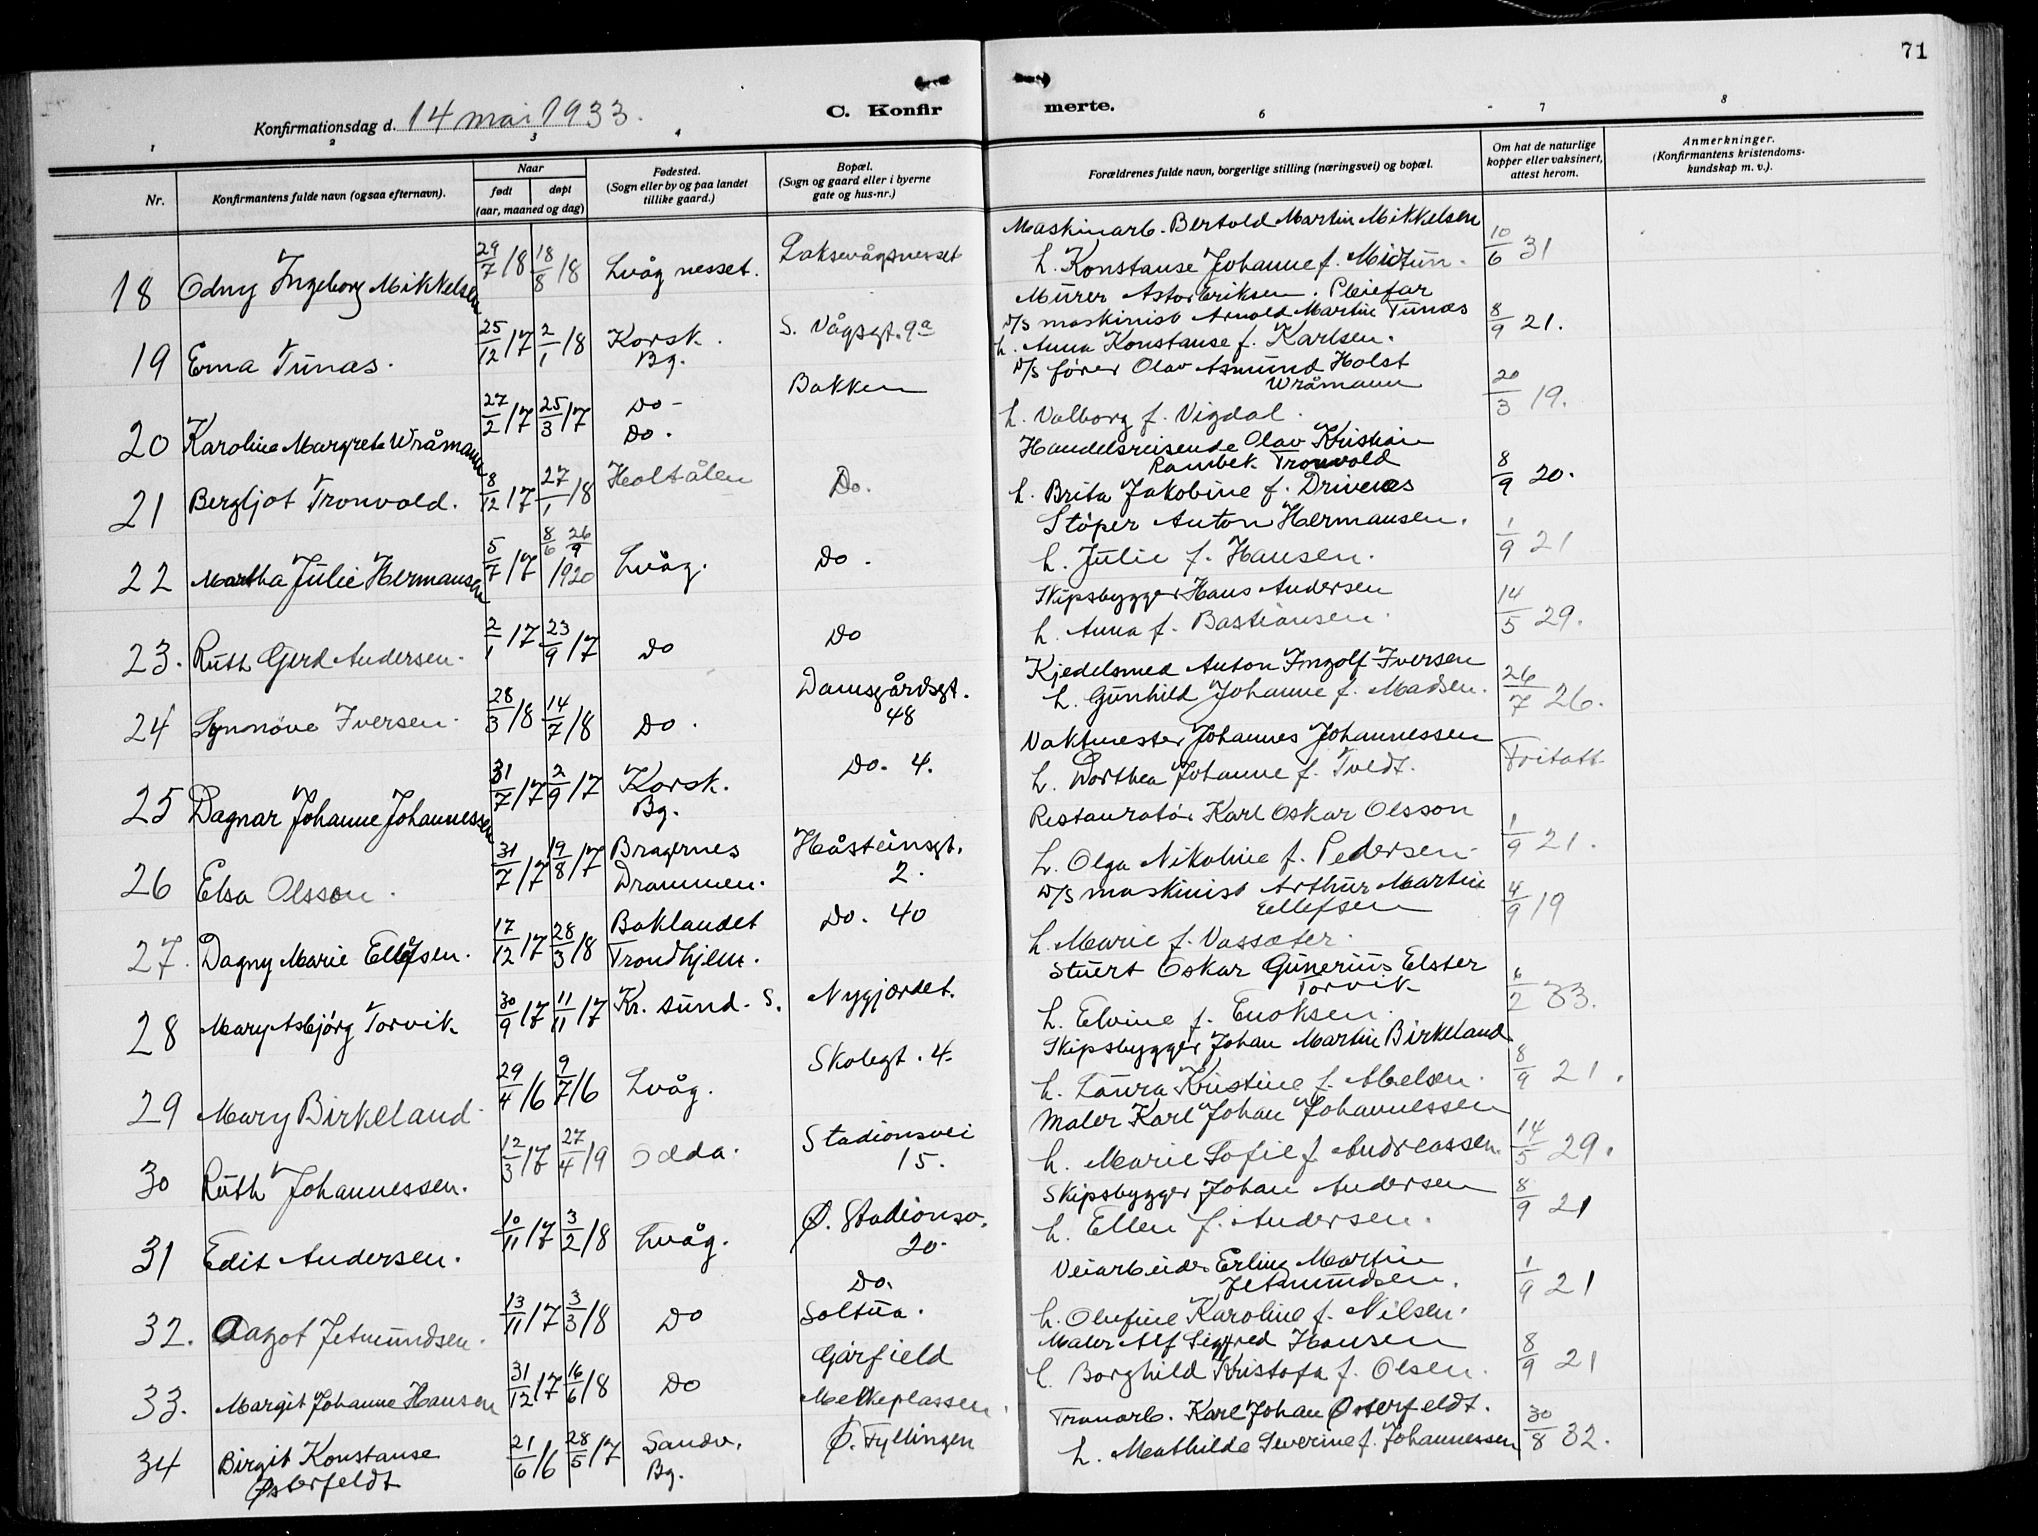 71
Konfirmationsdag d. 14 mai 1933.
C. Konfirmerte.
1 2 3 4 6 7 8
Nr.
Konfirmantens fulde navn (ogsaa efternavn).
Naar
født døpt
(aar, maaned og dag)
Fødested.
(Sogn eller by og paa landet
tillike gaard.)
Bopæl.
(Sogn og gaard eller i byerne
gate og hus-nr.)
Forældrenes fulde navn, borgerlige stilling (næringsvei) og bopæl.
Om hat de naturlige
kopper eller vaksinert,
attest herom.
Anmerkninger.
(Konfirmantens kristendoms-
kundskap m. v.).
18 Odny Ingeborg Mikkelsen 29/7/8 18/8/8 Lvåg nesset. Laksevågsnesset
Maskinarb. Bertold Martin Mikkelsen
h. Konstanse Johanne f. Midtun. 10/6 31
Murer Astor Eriksen. Pleiefar
19 Erna Tunæs. 25/12/17 2/1/8 Korsk. Bg. S. Vågsgt. 9a
D/S maskinist Arnold Martin Tunæs
h. Anna Konstanse f. Karlsen. 8/9 21.
20 Karoline Margrete Wråmann 27/2/17 25/3/17 Do - Do. Bakken
D/S fører Olav Asmund Holst
Wråmann
h. Valborg f. Vigdal. 20/3 19.
21 Bergljot Tronvold. 8/12/17 27/1/8 Holtålen Do.
Handelsreisende Olav Kristian
Rambek Tronvold
h. Brita Jakobine f. Drivenes 8/9 20.
22 Martha Julie Hermansen 5/7/17 8/6 26/9 1920 Lvåg. Do.
Støper Anton Hermansen.
h. Julie f. Hansen. 1/9 21
23. Ruth Gerd Andersen. 2/1/17 23/9/17 Do Do
Skipsbygger Hans Andersen
h. Anna f. Bastiansen. 14/5 29.
24 Synnøve Iversen. 28/3/8 14/7/8 Do. Damsgårdsgt. 48
Kjedelsmed Anton Ingolf Iversen
h. Gunhild Johanne f. Madsen. 26/7 26.
25 Dagnar Johanne Johannessen 31/7/17 2/9/17 Korsk. Bg. Do. 4.
Vaktmester Johannes Johannessen
h. Dorthea Johanne f. Tvedt. Fritatt
26 Elsa Olsson. 31/7/17 19/8/17 Bragernes Drammen. Håsteinsgt. 2.
Restauratør Karl Oskar Olsson
h. Olga Nikoline f. Pedersen 1/9 21.
27. Dagny Marie Ellefsen. 17/12/17 28/3/8 Baklandet Trondhjem. Do. 40
D/S maskinist Arthur Martin
Ellefsen
h. Marie f. Vassæter. 4/9 19
28 Mary Asbjørg Torvik 30/9/17 11/11/17 Kr. sund. S. Nygjordet.
Stuert Oskar Gunerius Elster
Torvik
h. Elvine f. Enoksen. 6/2 33.
29 Mary Birkeland 29/4/6 9/7/6 Lvåg. Skolegt. 4.
Skipsbygger Johan Martin Birkeland
h. Laura Kristine f. Abelsen. 8/9 21.
30 Ruth Johannessen. 12/3/17 27/4/9 Odda. Stadionsvei 15.
Maler Karl Johan Johannessen
h. Marie Sofie f. Andreassen. 14/5 29.
31 Edit Andersen. 10/11/17 3/2/8 Lvåg. Ø. Stadionsv. 20.
Skipsbygger Johan Andersen
h. Ellen f. Andersen. 8/9 21
32. Aagot Jetmundsen. 13/11/17 3/3/8 Do Do. Saltua.
Veiarbeider Erling Martin
Jetmundsen.
h. Olufine Karoline f. Nilsen. 1/9 21
33. Margit Johanne Hansen 31/12/17 16/6/8 Do Garfield Melkeplassen.
Maler Alf Sigfred Hansen
h. Borghild Kristofa f. Olsen. 8/9 21
34 Birgit Konstanse Østerfeldt 21/6/6 28/5/17 Sandv. Bg. Ø. Fyllingen
Tranarb. Karl Johan Østerfeldt.
h. Mathilde Severine f. Johannessen 30/8 32.